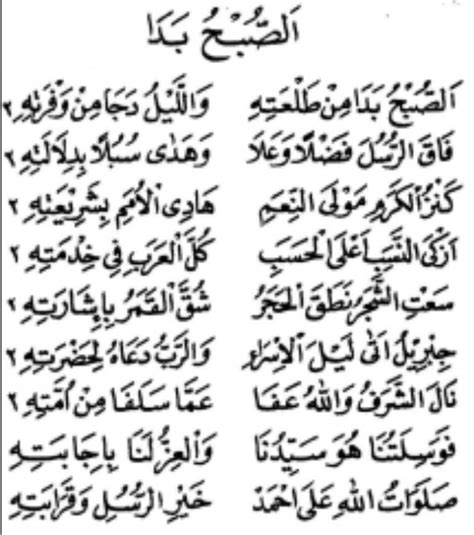 اَلصُّبْحُ بَدَا
اَلصُّبْحُ بَدَا مِنْ طَلْعَتِهِ وَاللَّيْلُ دَجَا مِنْ وَفْرَتِهِ ٢
فَاقَ الرُّسُلَ فَضْلًا وَعَلَا وَهَدٰى سُبُلًا بِدِلَالَتِهِ ٢
كَنْزُ الْكَرَمِ مَوْلَى النِّعَمِ هَادِى الْأُمَمِ بِشَرِيْعَتِهِ ٢
اَزْكَى النَّسَبِ اَعْلَى الْحَسَبِ كُلُّ الْعَرَبِ فِي خِدْمَتِهِ ٢
سَعَتِ الشَّجَرُ نَطَقَ الْحَجَرُ شُقَّ الْقَمَرُ بِاِشَارَتِهِ ٢
جِبْرِيْلُ اَتٰى لَيْلَ الْاِسْرَاءِ وَالرَّبُّ دَعَاهُ لِحَضْرَتِهِ ٢
نَالَ الشَّرَفُ وَاللهُ عَفَا عَمَّا سَلَفَا مِنْ اُمَّتِهِ ٢
فَوَسِلَتُنَا هُوَ سَيِّدُنَا وَالْعِزُّ لَنَا بِاِجَابَتِهِ
صَلَوَاتُ اللهِ عَلَى اَحْمَدْ خَيْرِ الرُّسُلِ وَقَرَابَتِهِ